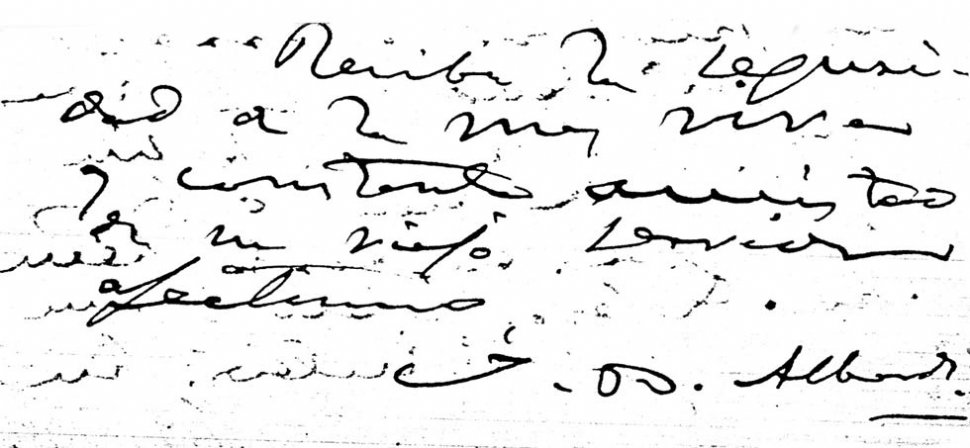 Reciba la seguri-
dad de la mas viva
y constante amistad
de su viejo servidor
afectisimo
J. B. Alberdi.